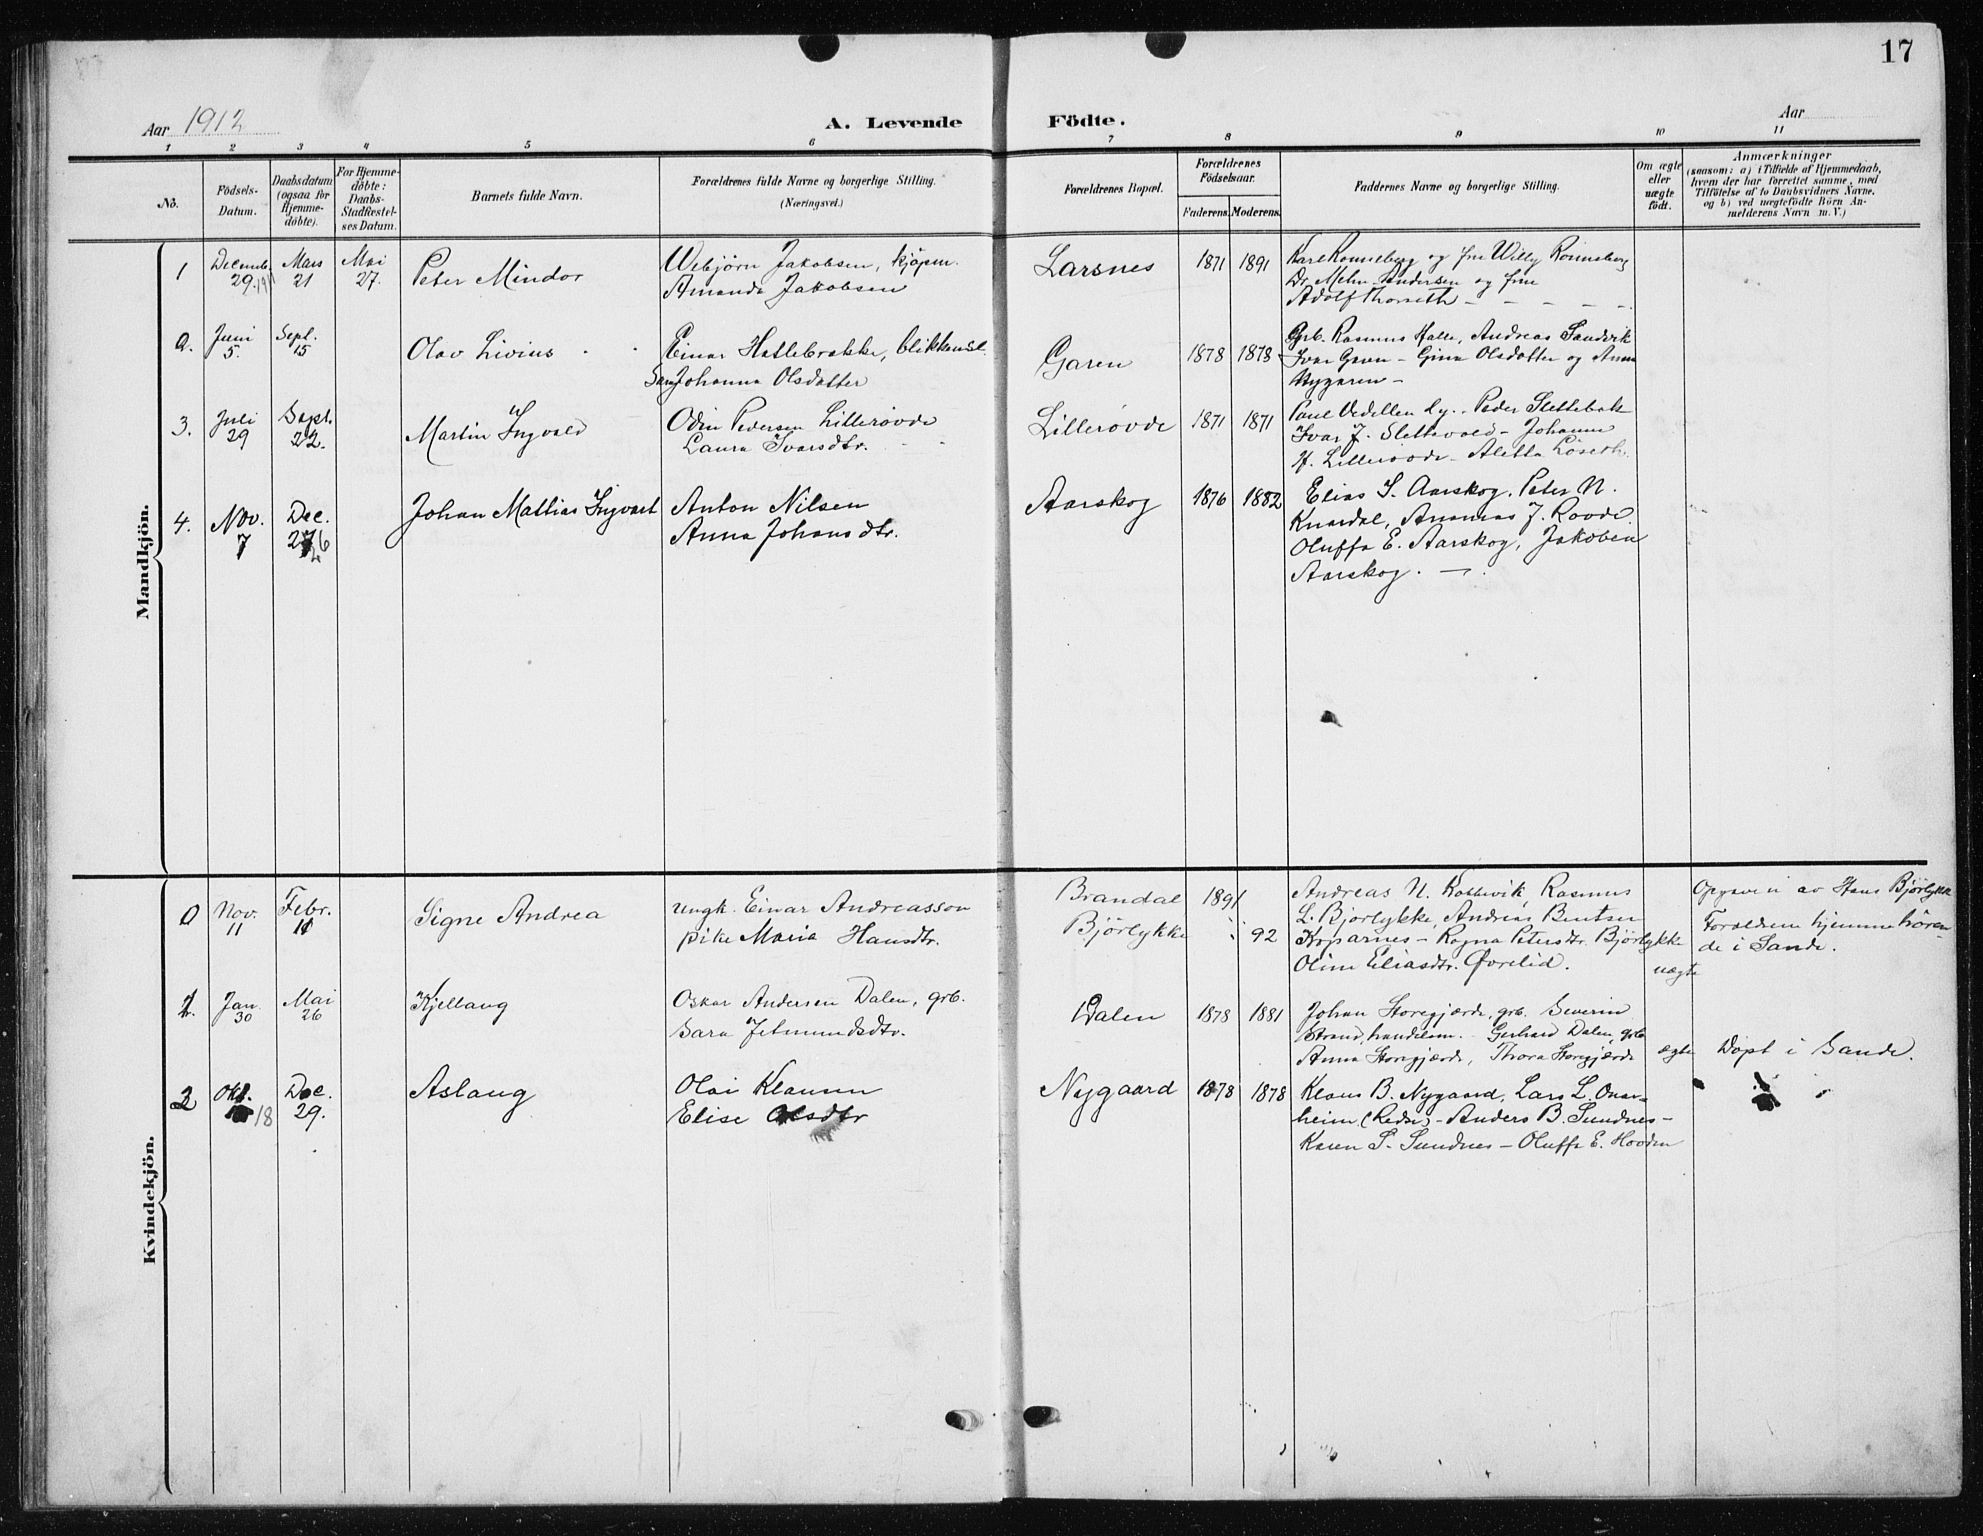 17
Aar 1912
A. Levende Födte.
Aar
1 2 3 4 5 6 7 8 9 10 11
No.
Födsels-Datum.
Daabsdatum (ogsaa for Hjemme-döbte).
For Hjemme-döbte: Daabs-Stadfæstel-ses Datum.
Barnets fulde Navn.
Forældrenes fulde Navne og borgerlige Stilling. (Næringsvei.)
Forældrenes Bopæl.
Forældrenes Födselsaar.
Faderens. Moderens.
Faddernes Navne og borgerlige Stilling.
Om ægte eller uægte födt.
Anmærkninger
(saasom: a) i Tilfælde af Hjemmedaab,
hvem der har forrettet samme, med
Tilföielse af to Daabsvidners Navne,
og b) ved uægtefödte Börn An-
melderens Navn m. V.)
Mandkjön.
1 Decemb. 29. 1911 Mars 21 Mai 27. Peter Mindor
Webjørn Jakobsen, kjøpm.
Amanda Jakobsen
Larsnes 1871 1891
Karl Ronneberg og fru Willy Rönneberg
Dr Mehn-Andersen og frue
Adolf Thorseth
2. Juni 5. Sept. 15 Olav Livius
Einar Hallebrekke,
Johanna Olsdatter
Garen 1878 1878
Grb. Rasmus Halle, Andreas Sandvik
Ivar Garen - Gina Olsdatter og Anna
Nygaren -
3. Juli 29 Sept. 22. Martin Ingvald
Odin Pedersen Lillerövde
Laura Ivarsdtr.
Lillerövde 1871 1871
Peder Slettebak
Ivar J. Slettevold - Johanne
Lillerövde - Aletta Löseth
4. Nov. 7 Dec. 26 Johan Mattias Ingvart
Anton Nilsen
Anna Johansdtr.
Aarskog 1876 1882
Elias S. Aarskog, Peter N.
Knardal, Ananias J. Rovde
Oluffa E. Aarskog, Jakobea
Aarskog. -
Kvindekjön.
0 Nov. 11 Febr. 11 Signe Andrea
ungk. Einar Andreasson
pike Marie Hansdtr.
Brandal 1891
Björlykke 92
Andreas N. Koltevik, Rasmus
L. Björlykke, Andrias Bentsen
Koparnes - Ragna Petersdtr. Björlykke
Oline Eliasdtr. Övrelid.
uægte
Opgaven av Hans Björlykke
Foreldrene hjemmehören-
de i Sande.
1. Jan. 30 Mai 26 Kjellaug
Oskar Andersen Dalen, grb.
Sara Jetmundsdtr.
Dalen 1878 1881
Johan Storegjærde, grb. Severin
Strand, handelsm. Gerhard Dalen, grb.
Anna Storegjærde, Thora Storegjærde
ægte
Döpt i Sande.
2 Okt. 18 Dec. 29. Aslaug
Olai Klausen
Elise Olsdtr
Nygaard 1878 1878
Klaus B. Nygaard, Lars L. Onar-
heim (Redse) - Anders B. Sundnes -
Karen S. Sundnes - Oluffa E. Hovden